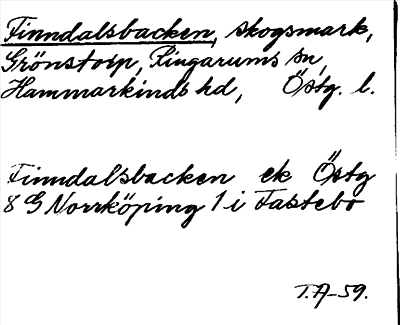 Finndalsbacken, skogsmark,
Grönstorp, Ringarums sn,
Hammarkinds hd, Östg. l.
Finndalsbacken ek Östg
8 G Norrköping 1 i Fastebo
T.A-59.